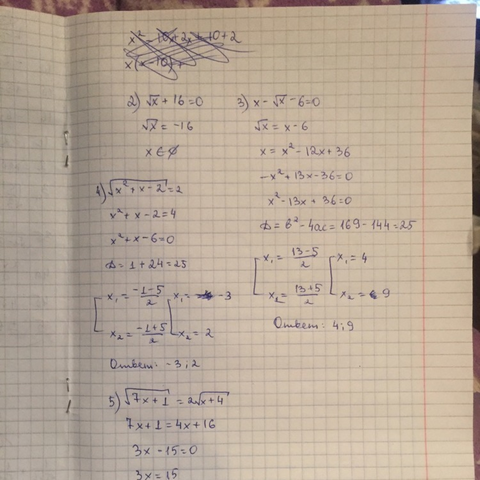 x² - 10x + 2x - 10 + 2
x(x-10)+
2) √x + 16 = 0
√x = -16
x ∈ ∅
3) x - √x - 6 = 0
√x = x - 6
x = x² - 12x + 36
-x² + 13x - 36 = 0
x² - 13x + 36 = 0
D = b² - 4ac = 169 - 144 = 25
[ x₁ = (13-5)/2 [ x₁ = 4
x₂ = (13+5)/2 x₂ = 9
Ответ: 4; 9
4) √(x² + x - 2) = 2
x² + x - 2 = 4
x² + x - 6 = 0
D = 1 + 24 = 25
[ x₁ = (-1-5)/2 [ x₁ = -3
x₂ = (-1+5)/2 x₂ = 2
Ответ: -3; 2
5) √(7x + 1) = 2√(x+4)
7x + 1 = 4x + 16
3x - 15 = 0
3x = 15